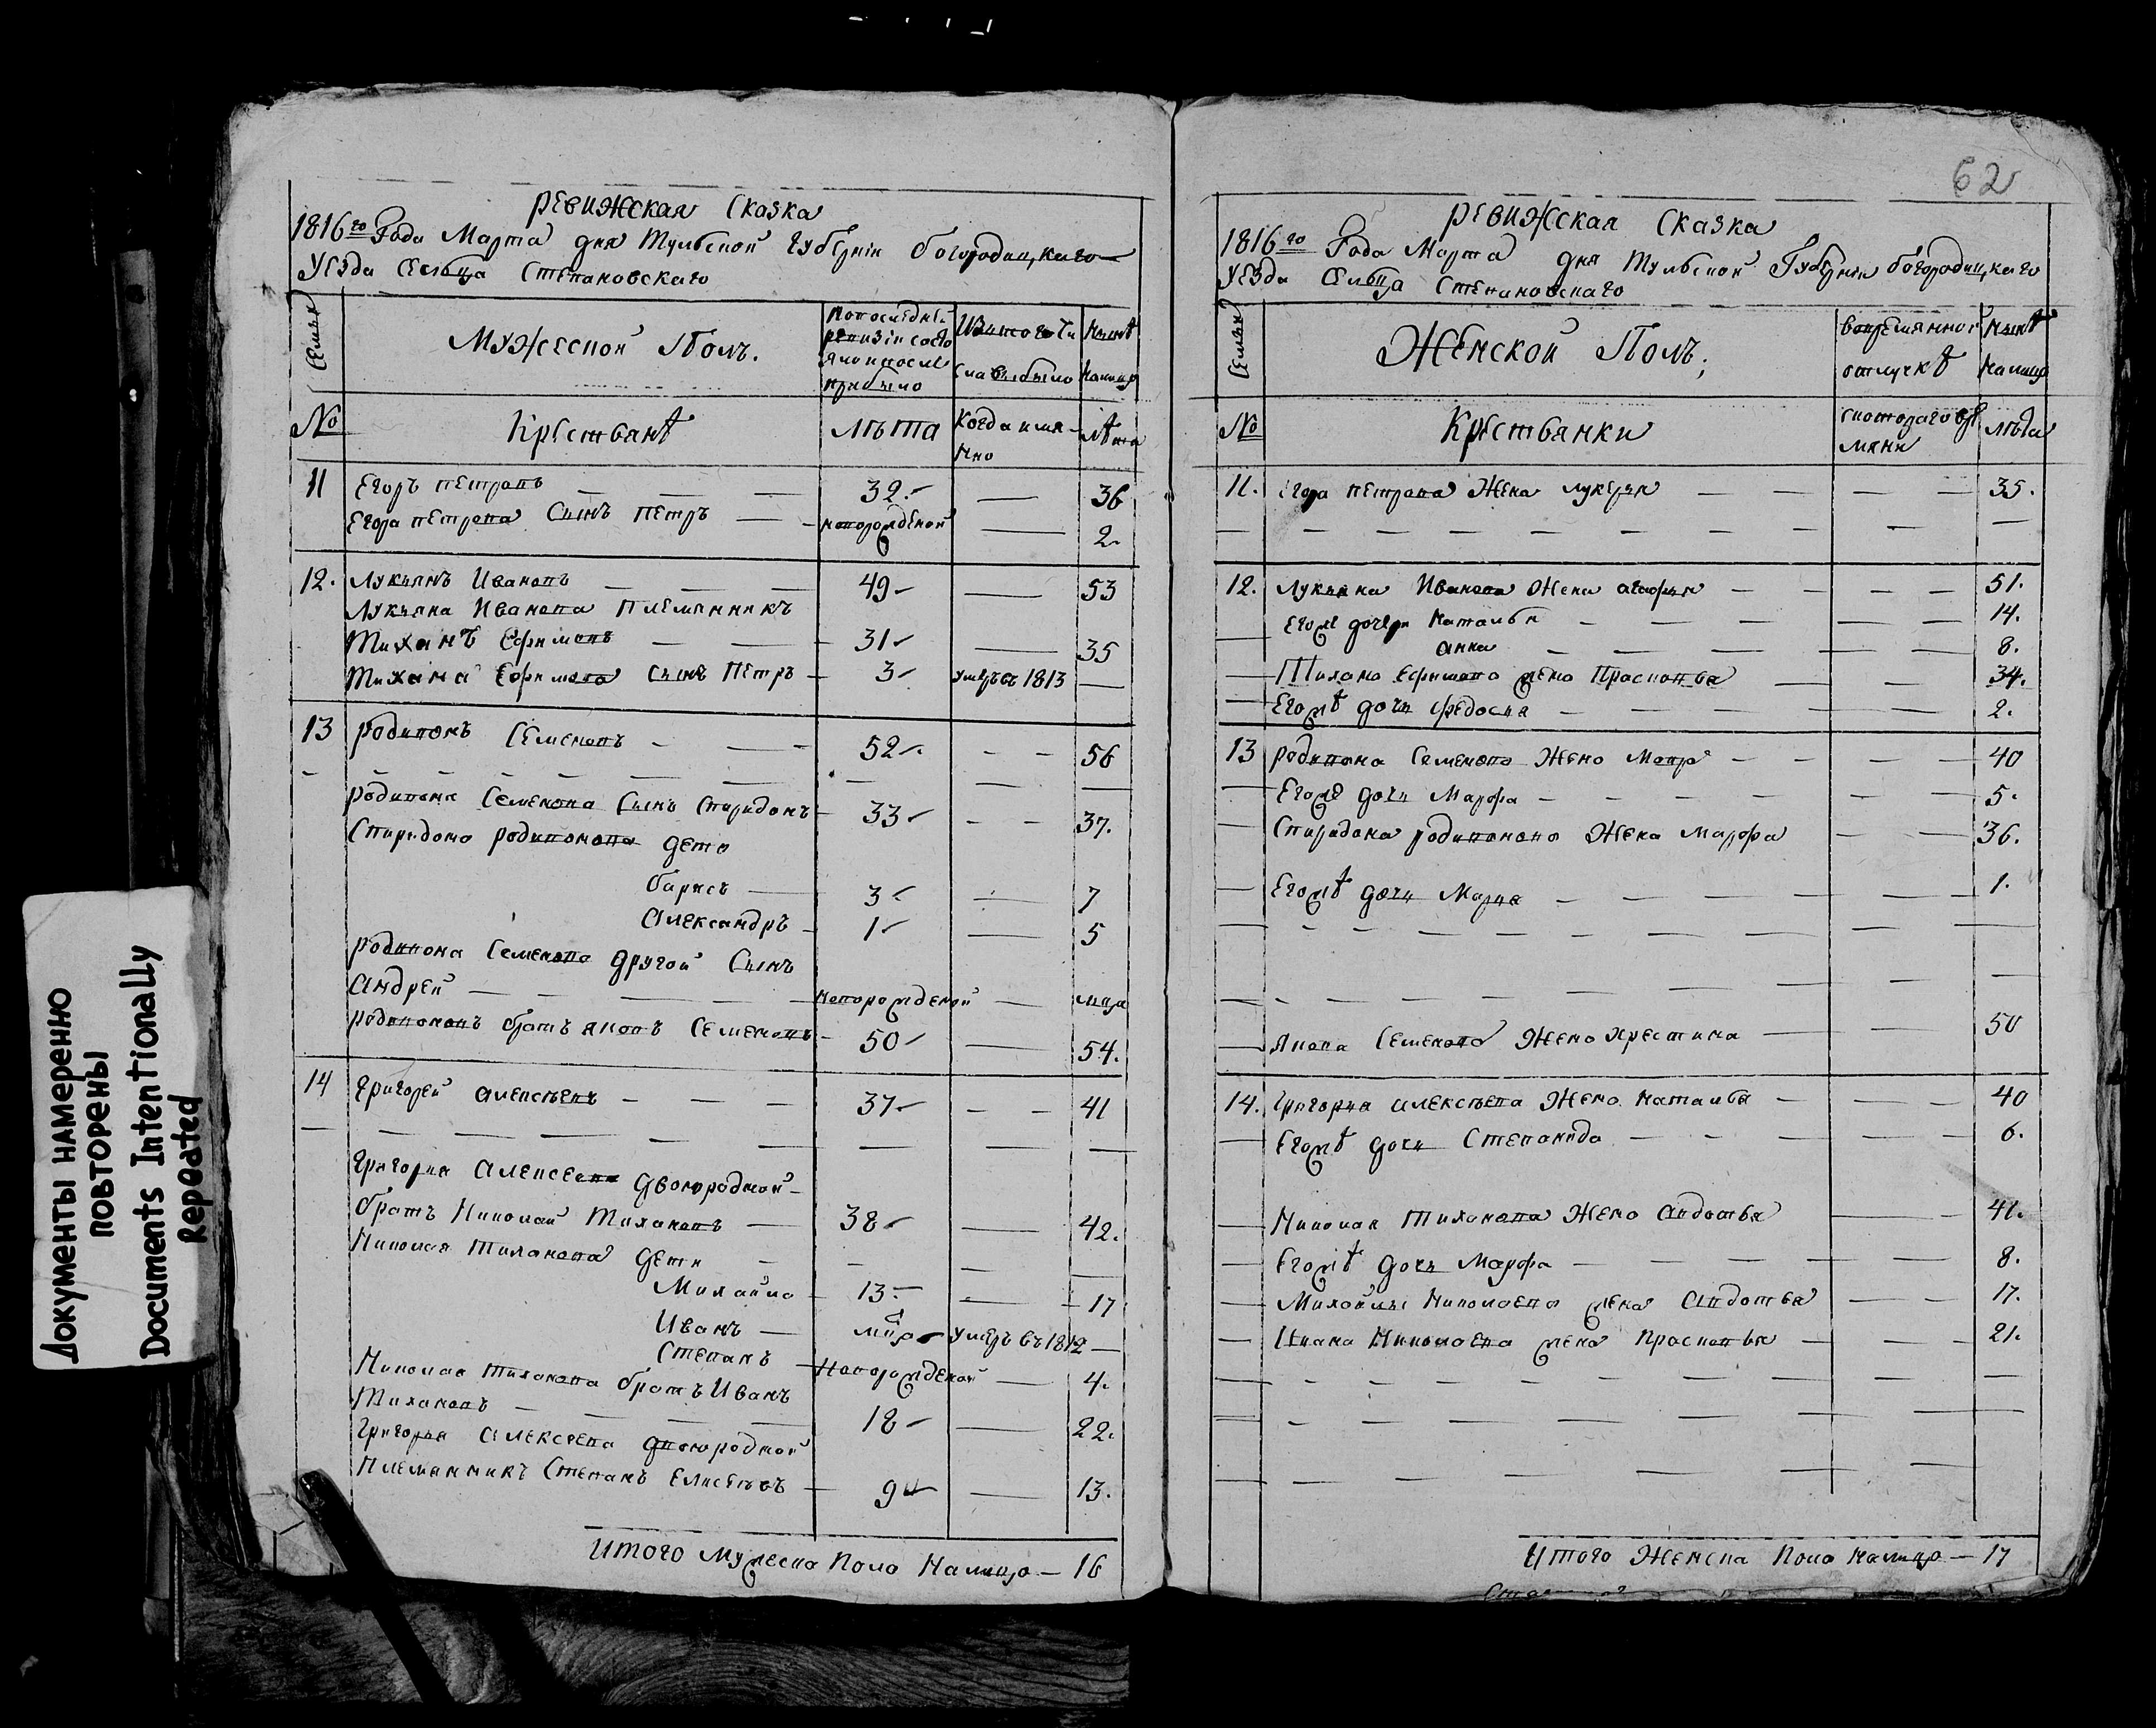 Документы намеренно
повторены
Documents Intentionally
Repeated
ревижская сказка
1816го Года Марта дня Тульской губернiи богородицкаго
Уезда Сельца Степановскаго
Семьи
Мужеской Полъ.
попоследней
ревизiи состо
яло и после
прибыло
Изтого чи
сла выбыло
ныне
налицо
№
Крестьяне
лъта
Когда имя-
нно
лета
11 Егоръ петровъ 32. 36
Егора петрова Сынъ петръ новорожденой 2.
12. Лукьянъ Ивановъ 49 53
Лукьяна Иванова племянникъ
Тиханъ Ефимовъ 31 35
Тихана Ефимова сынъ Петръ 3 умеръ въ 1813
13 родивонъ Семеновъ 52 56
родивона Семенова Сынъ Спиридонъ 33 37.
Спиридона родивонова дети
барисъ 3 7
Александръ 1 5
родивона Семенова другой Сынъ
Андрей новорожденой
родивоновъ братъ яковъ Семеновъ 50 54.
14 Григорей алексъевъ 37 41
Григорья Алексеева двоюродной
братъ Николай Тихановъ 38 42.
Николая Тиханова дети
Михайла 13 17
Иванъ умеръ въ 1812
Степанъ Новорожденой 4.
Николая тиханова братъ Иванъ
Тихановъ 18 22.
Григорья алексеева двоюродной
племянникъ Степанъ Елисеевъ 9 13.
Итого мужеска пола налицо 16
62
ревижская Сказка
1816го Года Марта дня Тульской Губернiи богородицкаго
Уезда Сельца Степановскаго
Семьи
Женской Полъ;
вовремянной
отлучке
ныне
налицо
№
Крестьянки
скотораго вре
мяни
лъта
11. Егора петрова Жена лукерья 35.
12. Лукьяна Иванова Жена агафья 51.
Егоже дочери наталья 14.
анна 8.
Тихана Ефимова жена Прасковья 34.
Егоже дочь федосья 2.
13 родивона Семенова Жена Мавра 40
Егоже дочь Марфа 5.
Спиридона родивонова Жена Марфа 36.
Егоже дочь Марья 1.
Якова Семенова Жена Хрестина 50
14. Григорья алексъева Жена Наталья 40
Егоже дочь Степанида 6.
Николая Тиханова Жена Авдотья 41.
Егоже дочь Марфа 8.
Михайлы Николаева жена Авдотья 17.
Ивана Николаева жена Прасковья 21.
Итого Женска пола налицо 17